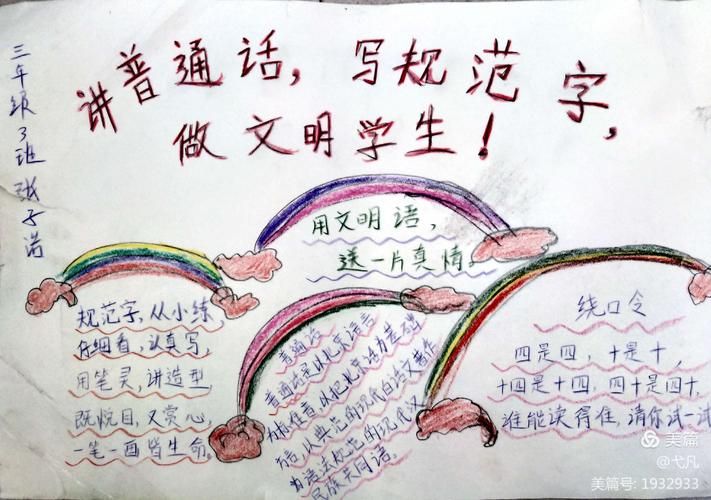 讲普通话，写规范字，
做文明学生！
三年级3班 张子诺
用文明语，
送一片真情。
规范字，从小练，
仔细看，认真写，
用笔灵，讲造型，
既悦目，又赏心，
一笔一画皆生命。
普通话
普通话是以北京语言
为标准音，以北京话为基础
方语，以典范的现代白话文著作
为语法规范的现代汉
民族共同语。
绕口令
四是四，十是十，
十四是十四，四十是四十，
谁能读得准，请你试一试
美篇
@弋凡
美篇号: 1932933